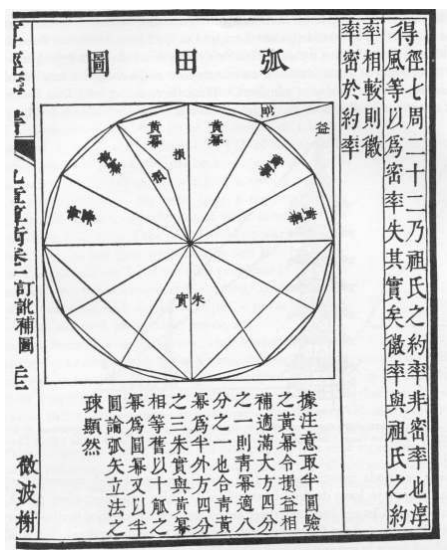 得徑七周二十二乃祖氏之約率非密率也淳
風等以爲密率失其實矣徽率與祖氏之約
率相較則徽
率密於約率
弧田圖
益
黃冪
黃冪
損
朱實
據注意取半圓驗
之黃冪令損益相
補適滿大方四分
之一則青冪適八
分之一也合青黃
冪爲半外方四分
之三朱實與黃冪
相等舊以十觚之
冪爲圓冪又以半
圓論弧矢立法之
疎顯然
九章算術卷一訂訛補圖
微波榭